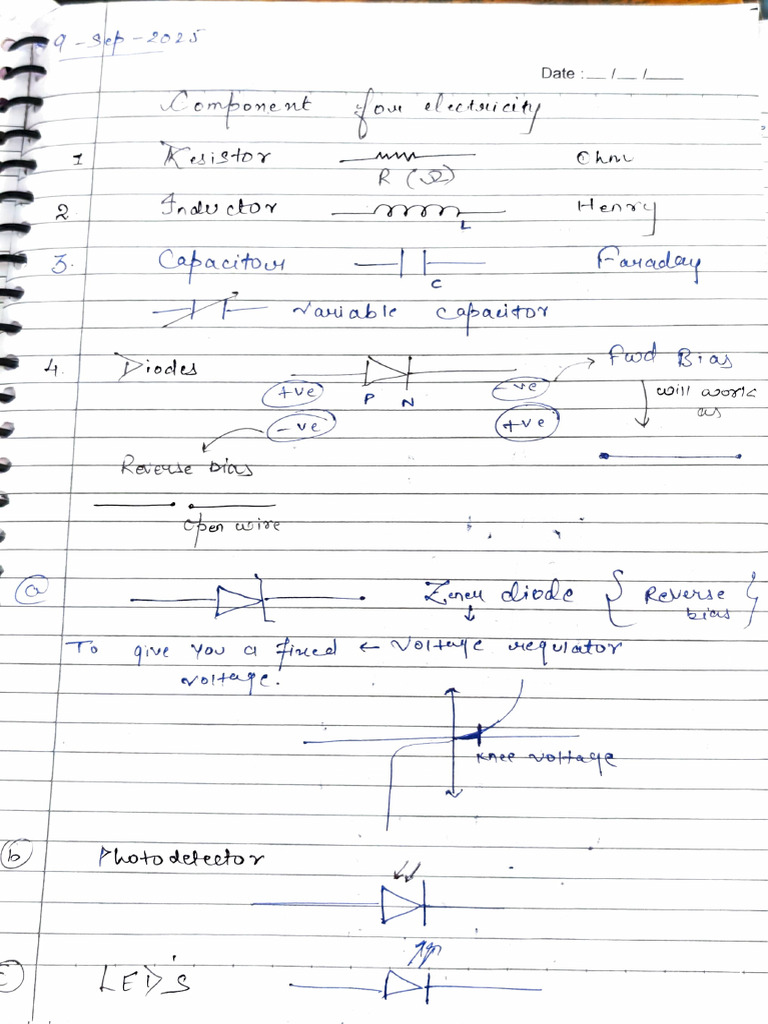 9-Sep-2025
Date : __ / __ / ____
Component for electricity
1 Resistor R (Ω) Ohm
2 Inductor L Henry
3. Capacitor C Faraday
variable capacitor
4. Diodes P N Fwd Bias
+ve -ve will work as
-ve +ve
Reverse bias
open wire
(a) Zener diode { Reverse bias }
To give you a fixed ← voltage regulator
voltage.
Knee voltage
(b) Photodetector
LED's